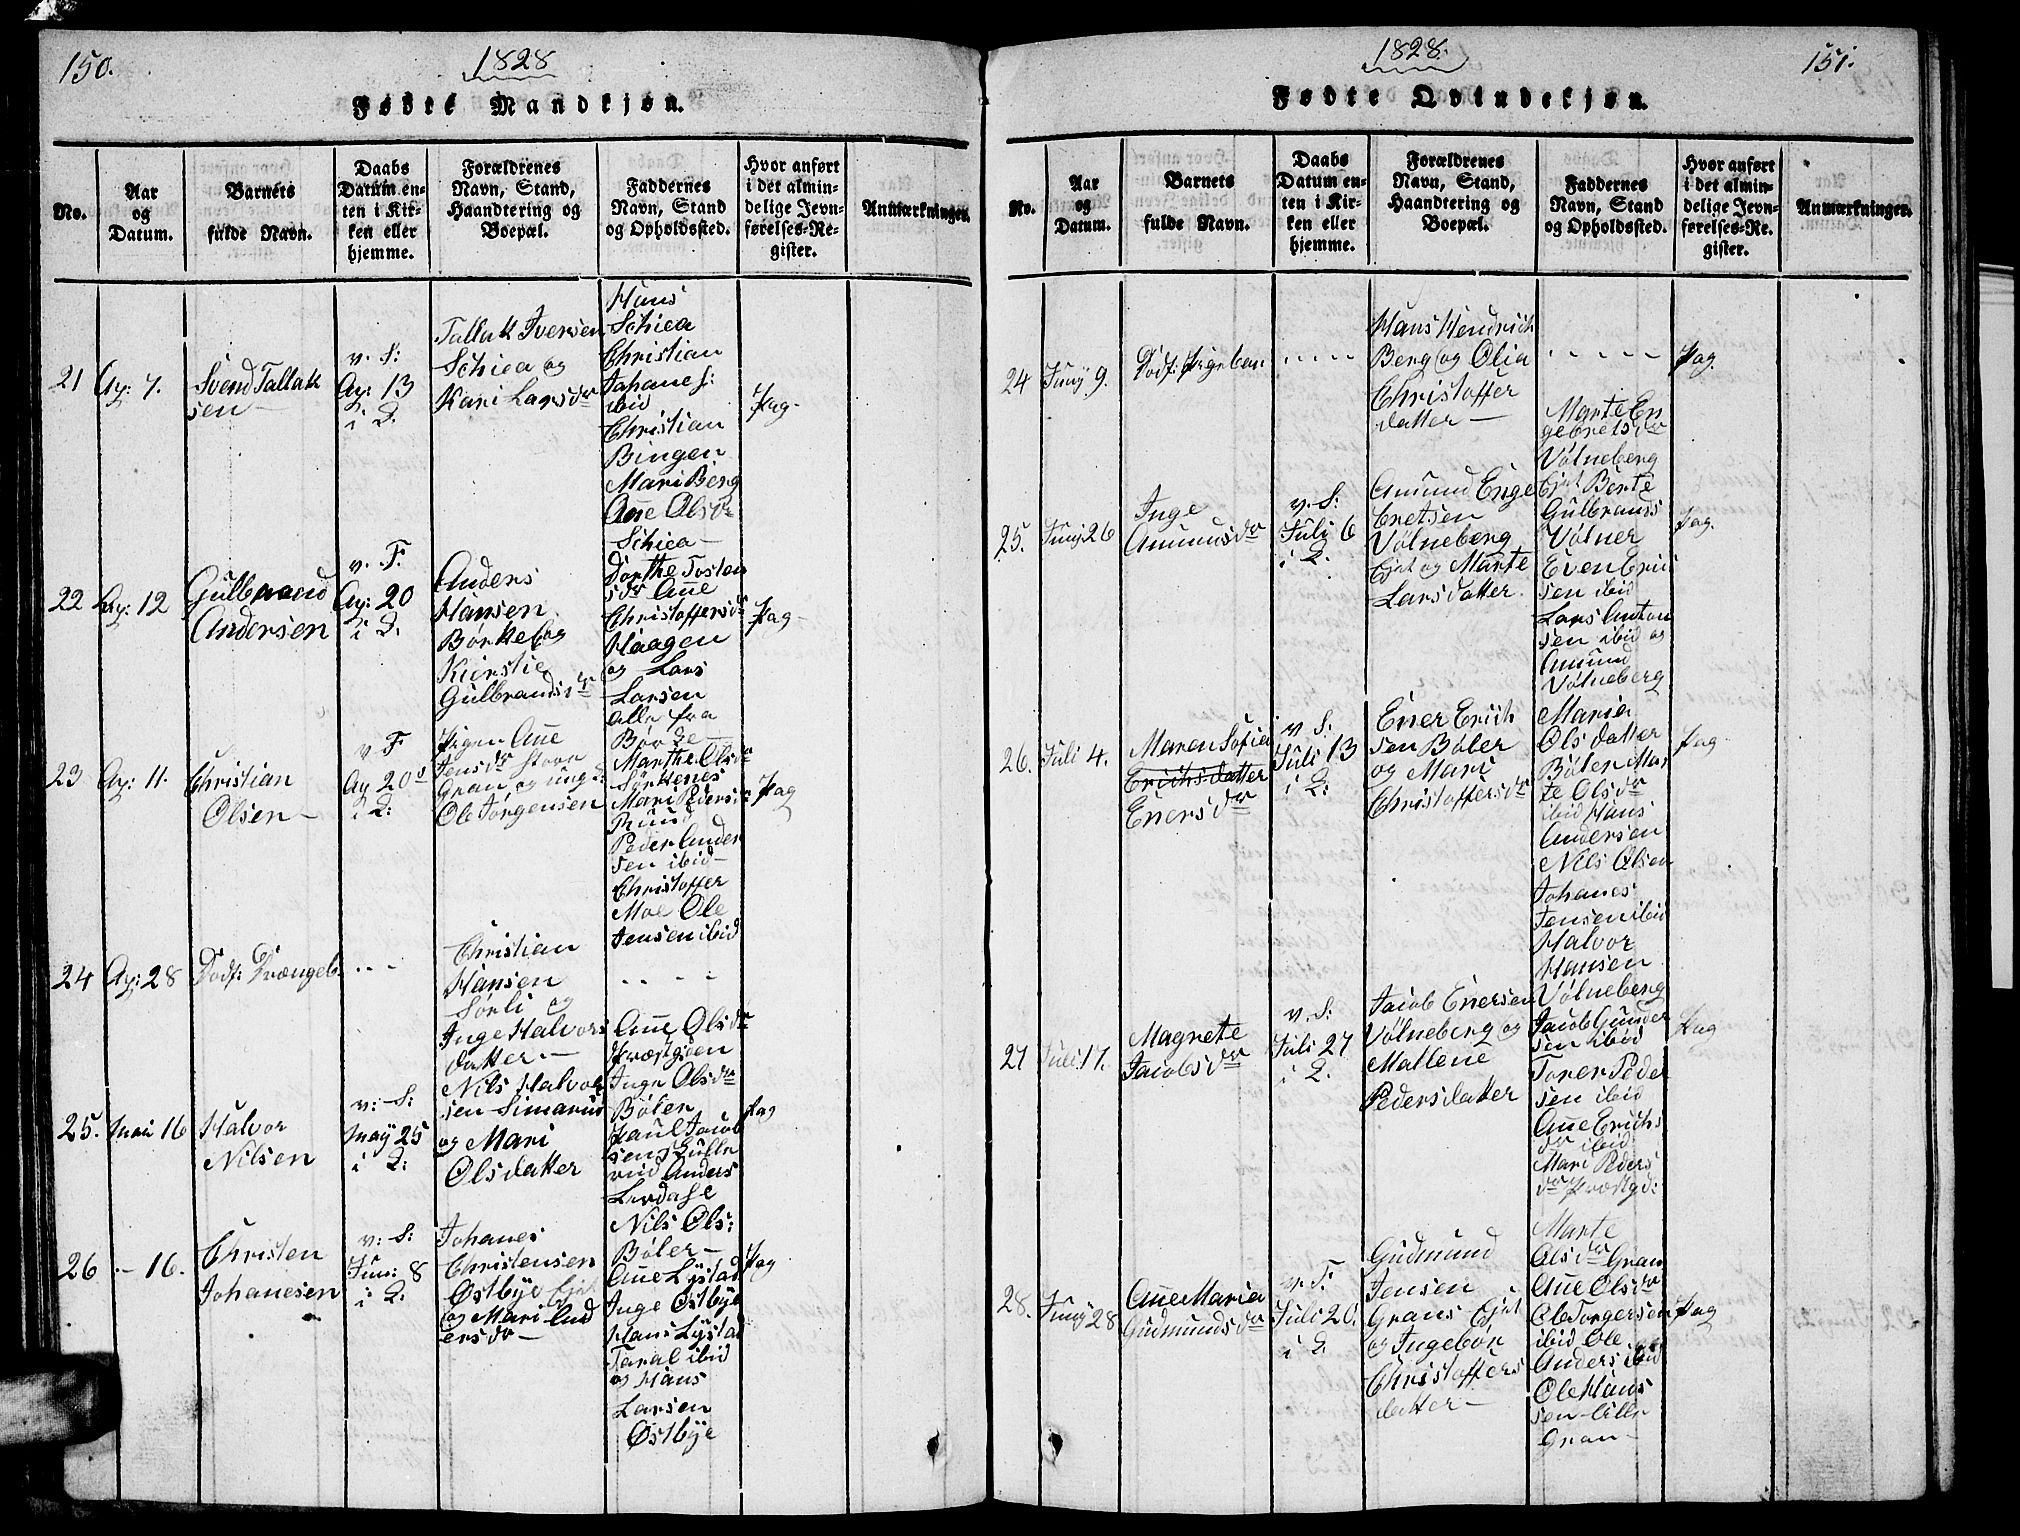 150.
1828
Fødte Mandkjøn.
No.
Aar
og
Datum.
Barnets
fulde Navn.
Daabs
Datum en-
ten i Kir-
ken eller
hjemme.
Forældrenes
Navn, Stand,
Haandtering og
Boepæl.
Faddernes
Navn, Stand
og Opholdssted.
Hvor anført
i det almin-
delige Jevn-
førelses-Re-
gister.
Anmærkninger.
21
Ap: 7.
Svend Tallak
sen
v. S:
Ap: 13
i K.
Tallak Iversen
Schiea og
Kari Larsdr
Hans
Schiea
Christian
Johanes:
ibid
Christian
Bingen
Mari Berg
Ane Olsdr
Schiea
Pag
22
Ap: 12
Gulbrand
Andersen
v. F.
Ap: 20
i K.
Anders
Hansen
Borke og
Kierstie
Gulbrandsdr
Dorthe Tosten
sdr Ane
Christoffersdr
Haagen
og Lars
Larsen
alle fra
Børge
Pag
23
Ap: 11.
Christian
Olsen
v. F
Ap 20
i K:
Pigen Ane
Jensdr store
Gran, og ung:
Ole Jørgensen
Marthe Olsdr
Mari Pedersdr
Ruud
Peder Ander
sen ibid
Christoffer
Moe Ole
Jensen ibid
Pag
24
Ap: 28
Dødf: Drængeb.
Christian
Hansen
Sørli og
Inge Halvors
datter
25.
Mai 16
Halvor
Nilsen
v: S:
May 25
i K:
Nils Halvor
sen Simarud
og Mari
Olsdatter
Ane Olsdr
Præstgden
Inge Olsdr
Bøler
Paul Jacob
sen Kulle
rud Anders
Lerdahl
Nils Ols:
Bøler
Pag
26
- 16.
Christen
Johanesen
v: S:
Juni 8
i K:
Johanes
Christensen
Østbye Ejet
og Mari And
ersdr
Ane Lystad
Inge Østbye
Hans Lystad
Taral ibid
og Hans
Larsen
Østbye
Pag
1828.
151.
Fødte Qvindekjøn.
No.
Aar
og
Datum.
Barnets
fulde Navn.
Daabs
Datum en-
ten i Kir-
ken eller
hjemme.
Forældrenes
Navn, Stand,
Haandtering og
Boepæl.
Faddernes
Navn, Stand
og Opholdssted.
Hvor anført
i det almin-
delige Jevn-
førelses-Re-
gister.
Anmærkninger.
24
Juny 9.
Dødf: Pigeban
Hans Hendrich
Berg og Olia
Christoffer
datter
Pag.
25.
Juny 26
Inge
Amunsdr
v. S:
Juli 6
i K.
Amund Enge
bretsen
Vølneberg
Ejet og Marte
Larsdatter
Marte En
gebretsdr
Vølneberg
Ejet Berte
Gulbrands
Vølner
Even Eric
sen ibid
Lars Anton
sen ibid og
Amund
Vølneberg
Pag.
26.
Juli 4.
Maren Sofia
Erichsdatter
Enersdr
v. S:
Juli 13
i K:
Ener Erich
sen Bøler
og Mari
Christoffersdr
Maria
Olsdatter
Bøler Mar
te Olsdr
ibid Hans
Andersen
Nils Olsen
Johanes
Jensen ibid
Halvor
Hansen
Vølneberg
Pag
27
Juli 17.
Magrete
Jacobsdr
v. S:
Juli 27
i K.
Jacob Enersen
Vølneberg og
Mallene
Pedersdatter
Jacob Gunder
sen ibid
Torer Peder
sen ibid
Ane Erichs
dr ibid
Mari Peders
dr Præstgd:
Pag
28.
Juny 28
Ane Maria
Gudmundsdr
v. F.
Juli 20.
i K
Gudmund
Jensen
Grans Ejet
og Ingebor
Christoffers
datter
Marte
Olsdr Gran
Ane Olsdr
Ole Torgersen
ibid Ole
Anders ibid
Ole Hans
sen Lille
Gran
Pag